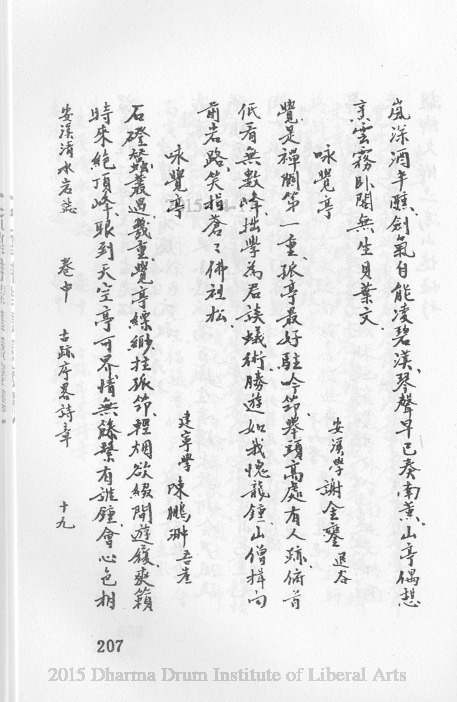 嵐深酒半醺、劍氣自能凌碧漢、琴聲早已奏南薰、山亭偶憩
烹雲霧、臥閣無生貝葉文、
咏覺亭
安溪學 謝金鑾 退谷
覺是禪關第一重、孤亭最好駐吟笻、舉頭高處有人跡、俯首
低看無數峰、拙學為君談蟻術、勝遊如我愧龍鍾、山僧揖向
前岩路、笑指蒼々佛祖松、
咏覺亭
建寧學 陳鵬 吾崖
石磴盤最過幾重、覺亭縹緲拄孤笻、輕烟欲綴閒遊屐、爽籟
時來絕頂峰、眼到天空亭可界、情無繫有誰鍾、會心色相
安溪清水岩誌 卷中 古跡序畧詩章 十九
207
2015 Dharma Drum Institute of Liberal Arts